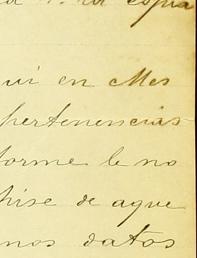 copia
ui en Mes
pertenencias
forme le no
hise de aque
nos datos